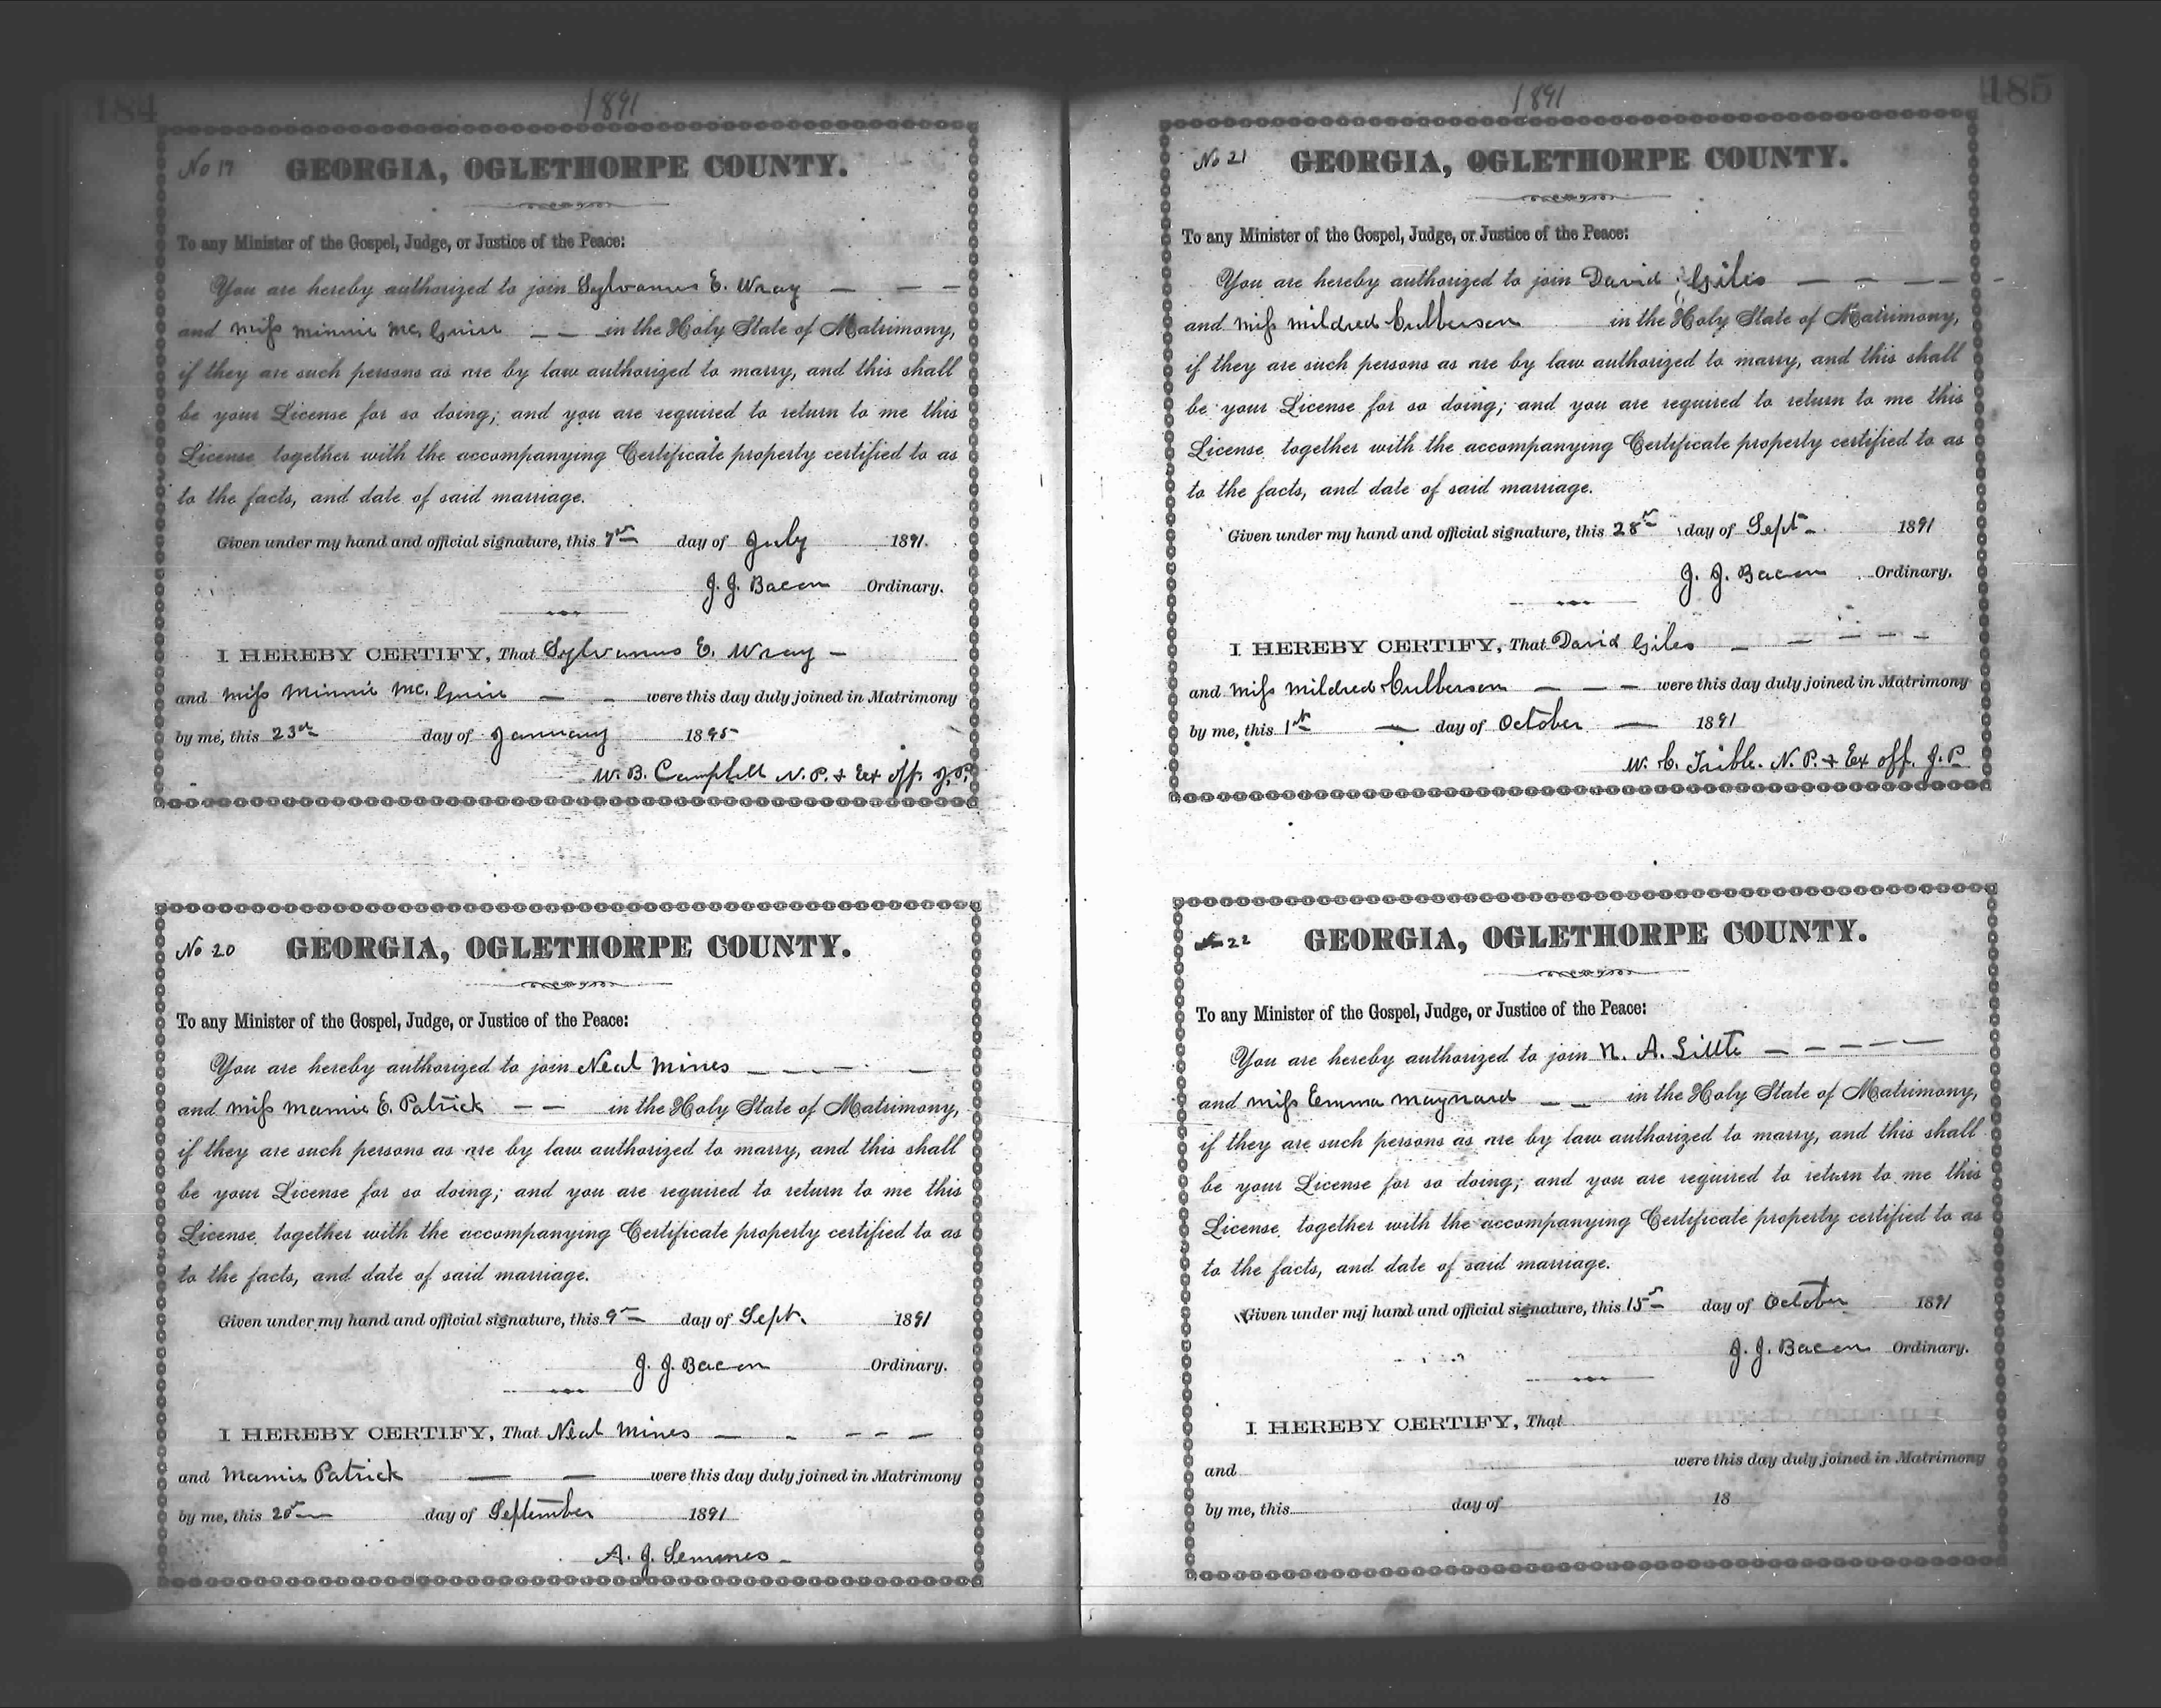 184
1891
No 17 GEORGIA, OGLETHORPE COUNTY.
To any Minister of the Gospel, Judge, or Justice of the Peace:
You are hereby authorized to join Sylvanus E. Wray
and Miss Minnie Mc. Guire in the Holy State of Matrimony,
if they are such persons as are by law authorized to marry, and this shall
be your License for so doing; and you are required to return to me this
License, together with the accompanying Certificate property certified to as
to the facts, and date of said marriage.
Given under my hand and official signature, this 7th day of July 1891.
J. J. Bacon Ordinary.
I HEREBY CERTIFY, That Sylvanus E. Wray
and Miss Minnie Mc. Guire were this day duly joined in Matrimony
by me, this 23rd day of January 1895
W. B. Campbell N. P. & Ex off. J. P.
No 20 GEORGIA, OGLETHORPE COUNTY.
To any Minister of the Gospel, Judge, or Justice of the Peace:
You are hereby authorized to join Neal Mines
and Miss Mamie E. Patrick in the Holy State of Matrimony,
if they are such persons as are by law authorized to marry, and this shall
be your License for so doing; and you are required to return to me this
License, together with the accompanying Certificate property certified to as
to the facts, and date of said marriage.
Given under my hand and official signature, this 9th day of Sept. 1891
J. J. Bacon Ordinary.
I HEREBY CERTIFY, That Neal Mines
and Mamie Patrick were this day duly joined in Matrimony
by me, this 20th day of September 1891
A. J. Semmes
185
1891
No 21 GEORGIA, OGLETHORPE COUNTY.
To any Minister of the Gospel, Judge, or Justice of the Peace:
You are hereby authorized to join David Giles
and Miss Mildred Culberson in the Holy State of Matrimony,
if they are such persons as are by law authorized to marry, and this shall
be your License for so doing; and you are required to return to me this
License, together with the accompanying Certificate property certified to as
to the facts, and date of said marriage.
Given under my hand and official signature, this 28th day of Sept. 1891
J. J. Bacon Ordinary.
I HEREBY CERTIFY, That David Giles
and Miss Mildred Culberson were this day duly joined in Matrimony
by me, this 1st day of October 1891
W. C. Tribble. N. P. & Ex off. J. P.
No 22 GEORGIA, OGLETHORPE COUNTY.
To any Minister of the Gospel, Judge, or Justice of the Peace:
You are hereby authorized to join N. A.
and Miss Emma Maynard in the Holy State of Matrimony,
if they are such persons as are by law authorized to marry, and this shall
be your License for so doing; and you are required to return to me this
License, together with the accompanying Certificate property certified to as
to the facts, and date of said marriage.
Given under my hand and official signature, this 15th day of October 1891
J. J. Bacon Ordinary.
I HEREBY CERTIFY, That
and were this day duly joined in Matrimony
by me, this day of 18